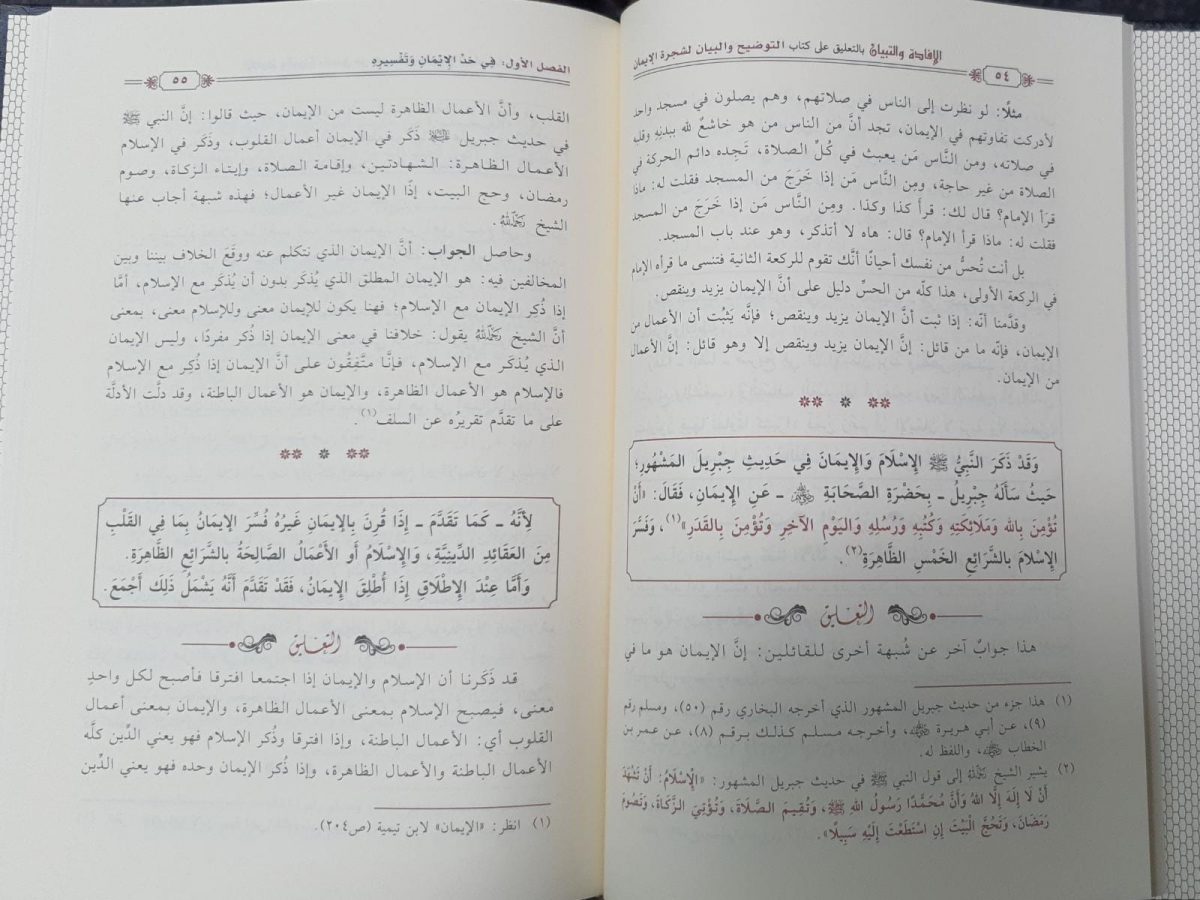 الإفادة والتبيان بالتعليق على كتاب التوضيح والبيان لشجرة الإيمان
٥٤
مثلًا: لو نظرت إلى الناس في صلاتهم، وهم يصلون في مسجد واحد
لأدركت تفاوتهم في الإيمان، تجد أنَّ من الناس من هو خاشعٌ لله ببدنه وقلبه
في صلاته، ومن النَّاس مَن يعبث في كُلِّ الصلاة، تَجِده دائم الحركة في
الصلاة من غير حاجة، ومِن النَّاس مَن إذا خَرَجَ من المسجد فقلت له: ماذا
قرَأ الإمام؟ قال لك: قرأ كذا وكذا. ومِن النَّاس مَن إذا خَرَجَ من المسجد
فقلت له: ماذا قرأ الإمام؟ قال: هاه لا أتذكر، وهو عند باب المسجد.
بل أنت تُحسُّ من نفسك أحيانًا أنَّك تقوم للركعة الثانية فتنسى ما قرأه الإمام
في الركعة الأولى، هذا كلّه من الحسِّ دليل على أنَّ الإيمان يزيد وينقص.
وقدَّمنا أنّه: إذا ثبت أنَّ الإيمان يزيد وينقص؛ فإنَّه يَثبُت أن الأعمال من
الإيمان، فإنّه ما من قائل: إنَّ الإيمان يزيد وينقص إلا وهو قائل: إنَّ الأعمال
من الإيمان.
وَقَدْ ذَكَرَ النَّبِيُّ ﷺ الإِسْلَامَ وَالإِيمَانَ فِي حَدِيثِ جِبْرِيلَ المَشْهُورِ؛
حَيثُ سَأَلَهُ جِبْرِيلُ ـ بِحَضْرَةِ الصَّحَابَةِ ﵃ ـ عَنِ الإِيمَانِ، فَقَالَ: «أَنْ
تُؤْمِنَ بِاللهِ وَمَلَائِكَتِهِ وَكُتُبِهِ وَرُسُلِهِ وَاليَوْمِ الآخِرِ وَتُؤْمِنَ بِالقَدَرِ»(١)، وَفَسَّرَ
الإِسْلَامَ بِالشَّرَائِعِ الخَمْسِ الظَّاهِرَةِ(٢).
التعليق
هذا جوابٌ آخر عن شُبهة أخرى للقائلين: إنَّ الإيمان هو ما في
(١) هذا جزء من حديث جبريل المشهور الذي أخرجه البخاري رقم (٥٠)، ومسلم رقم
(٩)، عن أبي هريرة ﵁، وأخرجه مسلم كذلك برقم (٨)، عن عمر بن
الخطاب ﵁، واللفظ له.
(٢) يشير الشيخ ﵀ إلى قول النبي ﷺ في حديث جبريل المشهور: «الْإِسْلَامُ: أَنْ تَشْهَدَ
أَنْ لَا إِلَهَ إِلَّا اللهُ وَأَنَّ مُحَمَّدًا رَسُولُ اللهِ ﷺ، وَتُقِيمَ الصَّلَاةَ، وَتُؤْتِيَ الزَّكَاةَ، وَتَصُومَ
رَمَضَانَ، وَتَحُجَّ الْبَيْتَ إِنِ اسْتَطَعْتَ إِلَيْهِ سَبِيلًا».
الفصل الأول: فِي حَدِّ الإِيْمَانِ وَتَفْسِيرِهِ
٥٥
القلب، وأنَّ الأعمال الظاهرة ليست من الإيمان، حيث قالوا: إنَّ النبي ﷺ
في حديث جبريل ﵇ ذَكَر في الإيمان أعمال القلوب، وذَكَر في الإسلام
الأعمال الظاهرة: الشهادتين، وإقامة الصلاة، وإيتاء الزكاة، وصوم
رمضان، وحج البيت، إذًا الإيمان غير الأعمال؛ فهذه شبهة أجاب عنها
الشيخ ﵀.
وحاصل الجواب: أنَّ الإيمان الذي نتكلم عنه ووقَعَ الخلاف بيننا وبين
المخالفين فيه: هو الإيمان المطلق الذي يُذكَر بدون أن يُذكَر مع الإسلام، أمَّا
إذا ذُكِر الإيمان مع الإسلام؛ فهنا يكون للإيمان معنى وللإسلام معنى، بمعنى
أنَّ الشيخ ﵀ يقول: خلافنا في معنى الإيمان إذا ذُكر مفردًا، وليس الإيمان
الذي يُذكَر مع الإسلام، فإنَّا متَّفِقُون على أنَّ الإيمان إذا ذُكِر مع الإسلام
فالإسلام هو الأعمال الظاهرة، والإيمان هو الأعمال الباطنة، وقد دلَّت الأدلّة
على ما تقدَّم تقريرُه عن السلف(١).
لِأَنَّهُ ـ كَمَا تَقَدَّمَ ـ إِذَا قُرِنَ بِالإِيمَانِ غَيْرُهُ فُسِّرَ الإِيمَانُ بِمَا فِي القَلْبِ
مِنَ العَقَائِدِ الدِّينِيَّةِ، وَالإِسْلَامُ أَوِ الأَعْمَالُ الصَّالِحَةُ بِالشَّرَائِعِ الظَّاهِرَةِ.
وَأَمَّا عِنْدَ الإِطْلَاقِ إِذَا أُطْلِقَ الإِيمَانُ، فَقَدْ تَقَدَّمَ أَنَّهُ يَشْمَلُ ذَلِكَ أَجْمَعَ.
التعليق
قد ذَكَرنا أن الإسلام والإيمان إذا اجتمعا افترقا فأصبح لكل واحدٍ
معنى، فيصبح الإسلام بمعنى الأعمال الظاهرة، والإيمان بمعنى أعمال
القلوب أي: الأعمال الباطنة، وإذا افترقا وذُكر الإسلام فهو يعني الدِّين كلَّه
الأعمال الباطنة والأعمال الظاهرة، وإذا ذُكر الإيمان وحده فهو يعني الدِّين
(١) انظر: «الإيمان» لابن تيمية (ص٢٠٤).